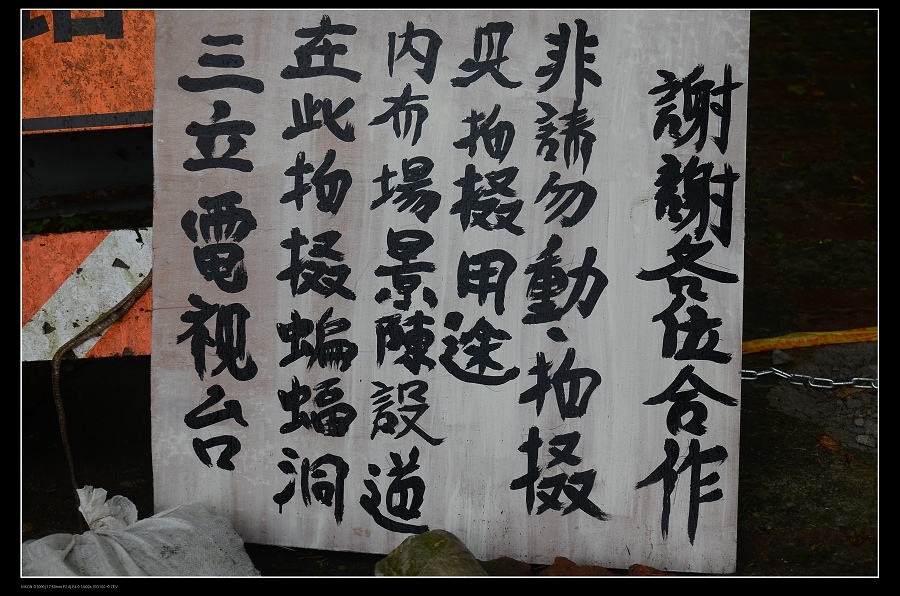 三立電視台
在此拍摄蝙蝠洞
内布場景陳設道
具拍摄用途
非請勿動、拍摄
謝謝各位合作